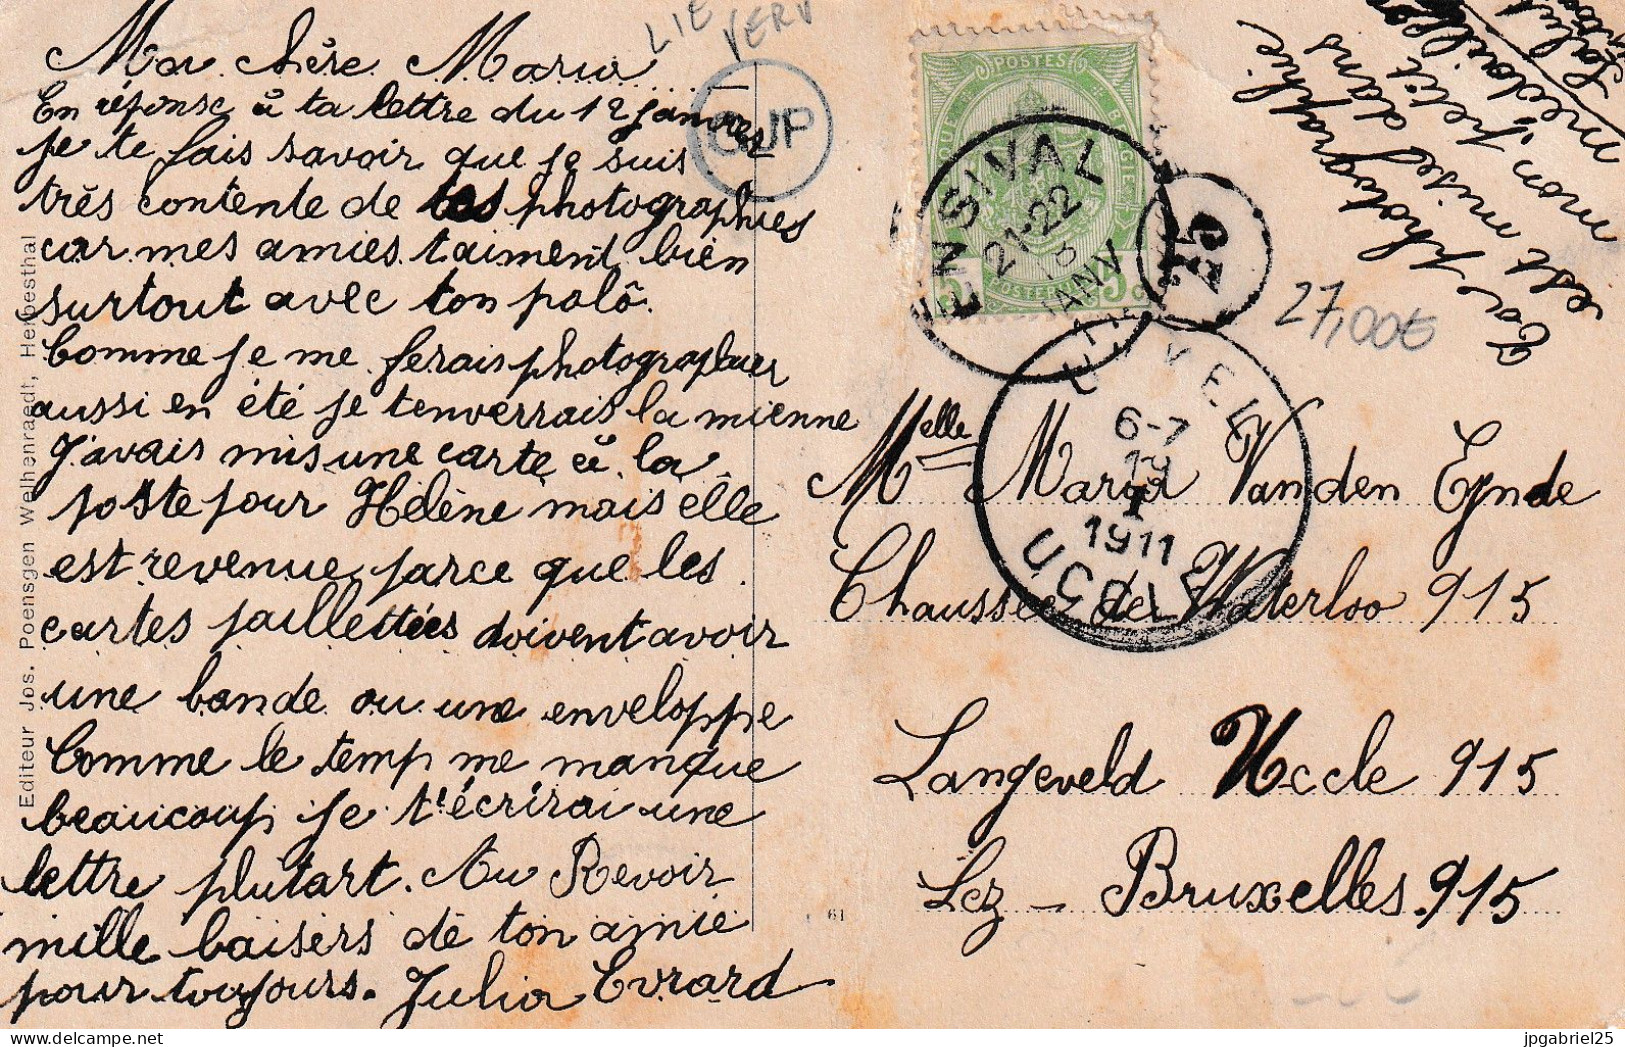 Ma chère Maria
En réponse à ta lettre du 12 janvier
je te fais savoir que je suis
très contente de tes photographies
car mes amies t'aiment bien
surtout avec ton polô.
Comme je me ferais photographier
aussi en été je t'enverrais la mienne
J'avais mis une carte à la
poste pour Hélène mais elle
est revenue parce que les
cartes paillettées doivent avoir
une bande ou une enveloppe
Comme le temp me manque
beaucoup je t'écrirai une
lettre plutart. Au Revoir
mille baisers de ton amie
pour toujours. Julia Evrard
Ta photographie
est mise dans
mon petit
médaillon
Salut
LIE
VERV
GJP
POSTES
5 c 5 c
ENSIVAL
21-22
JANV
25
27,00€
UCCLE
6-7
19
I
1911
UKKEL
Melle Maria Vanden Eynde
Chaussée de Waterloo 915
Langeveld Uccle 915
Lez - Bruxelles. 915
61
Editeur Jos. Poensgen Welhenraedt, Herbesthal
jpgabriel25